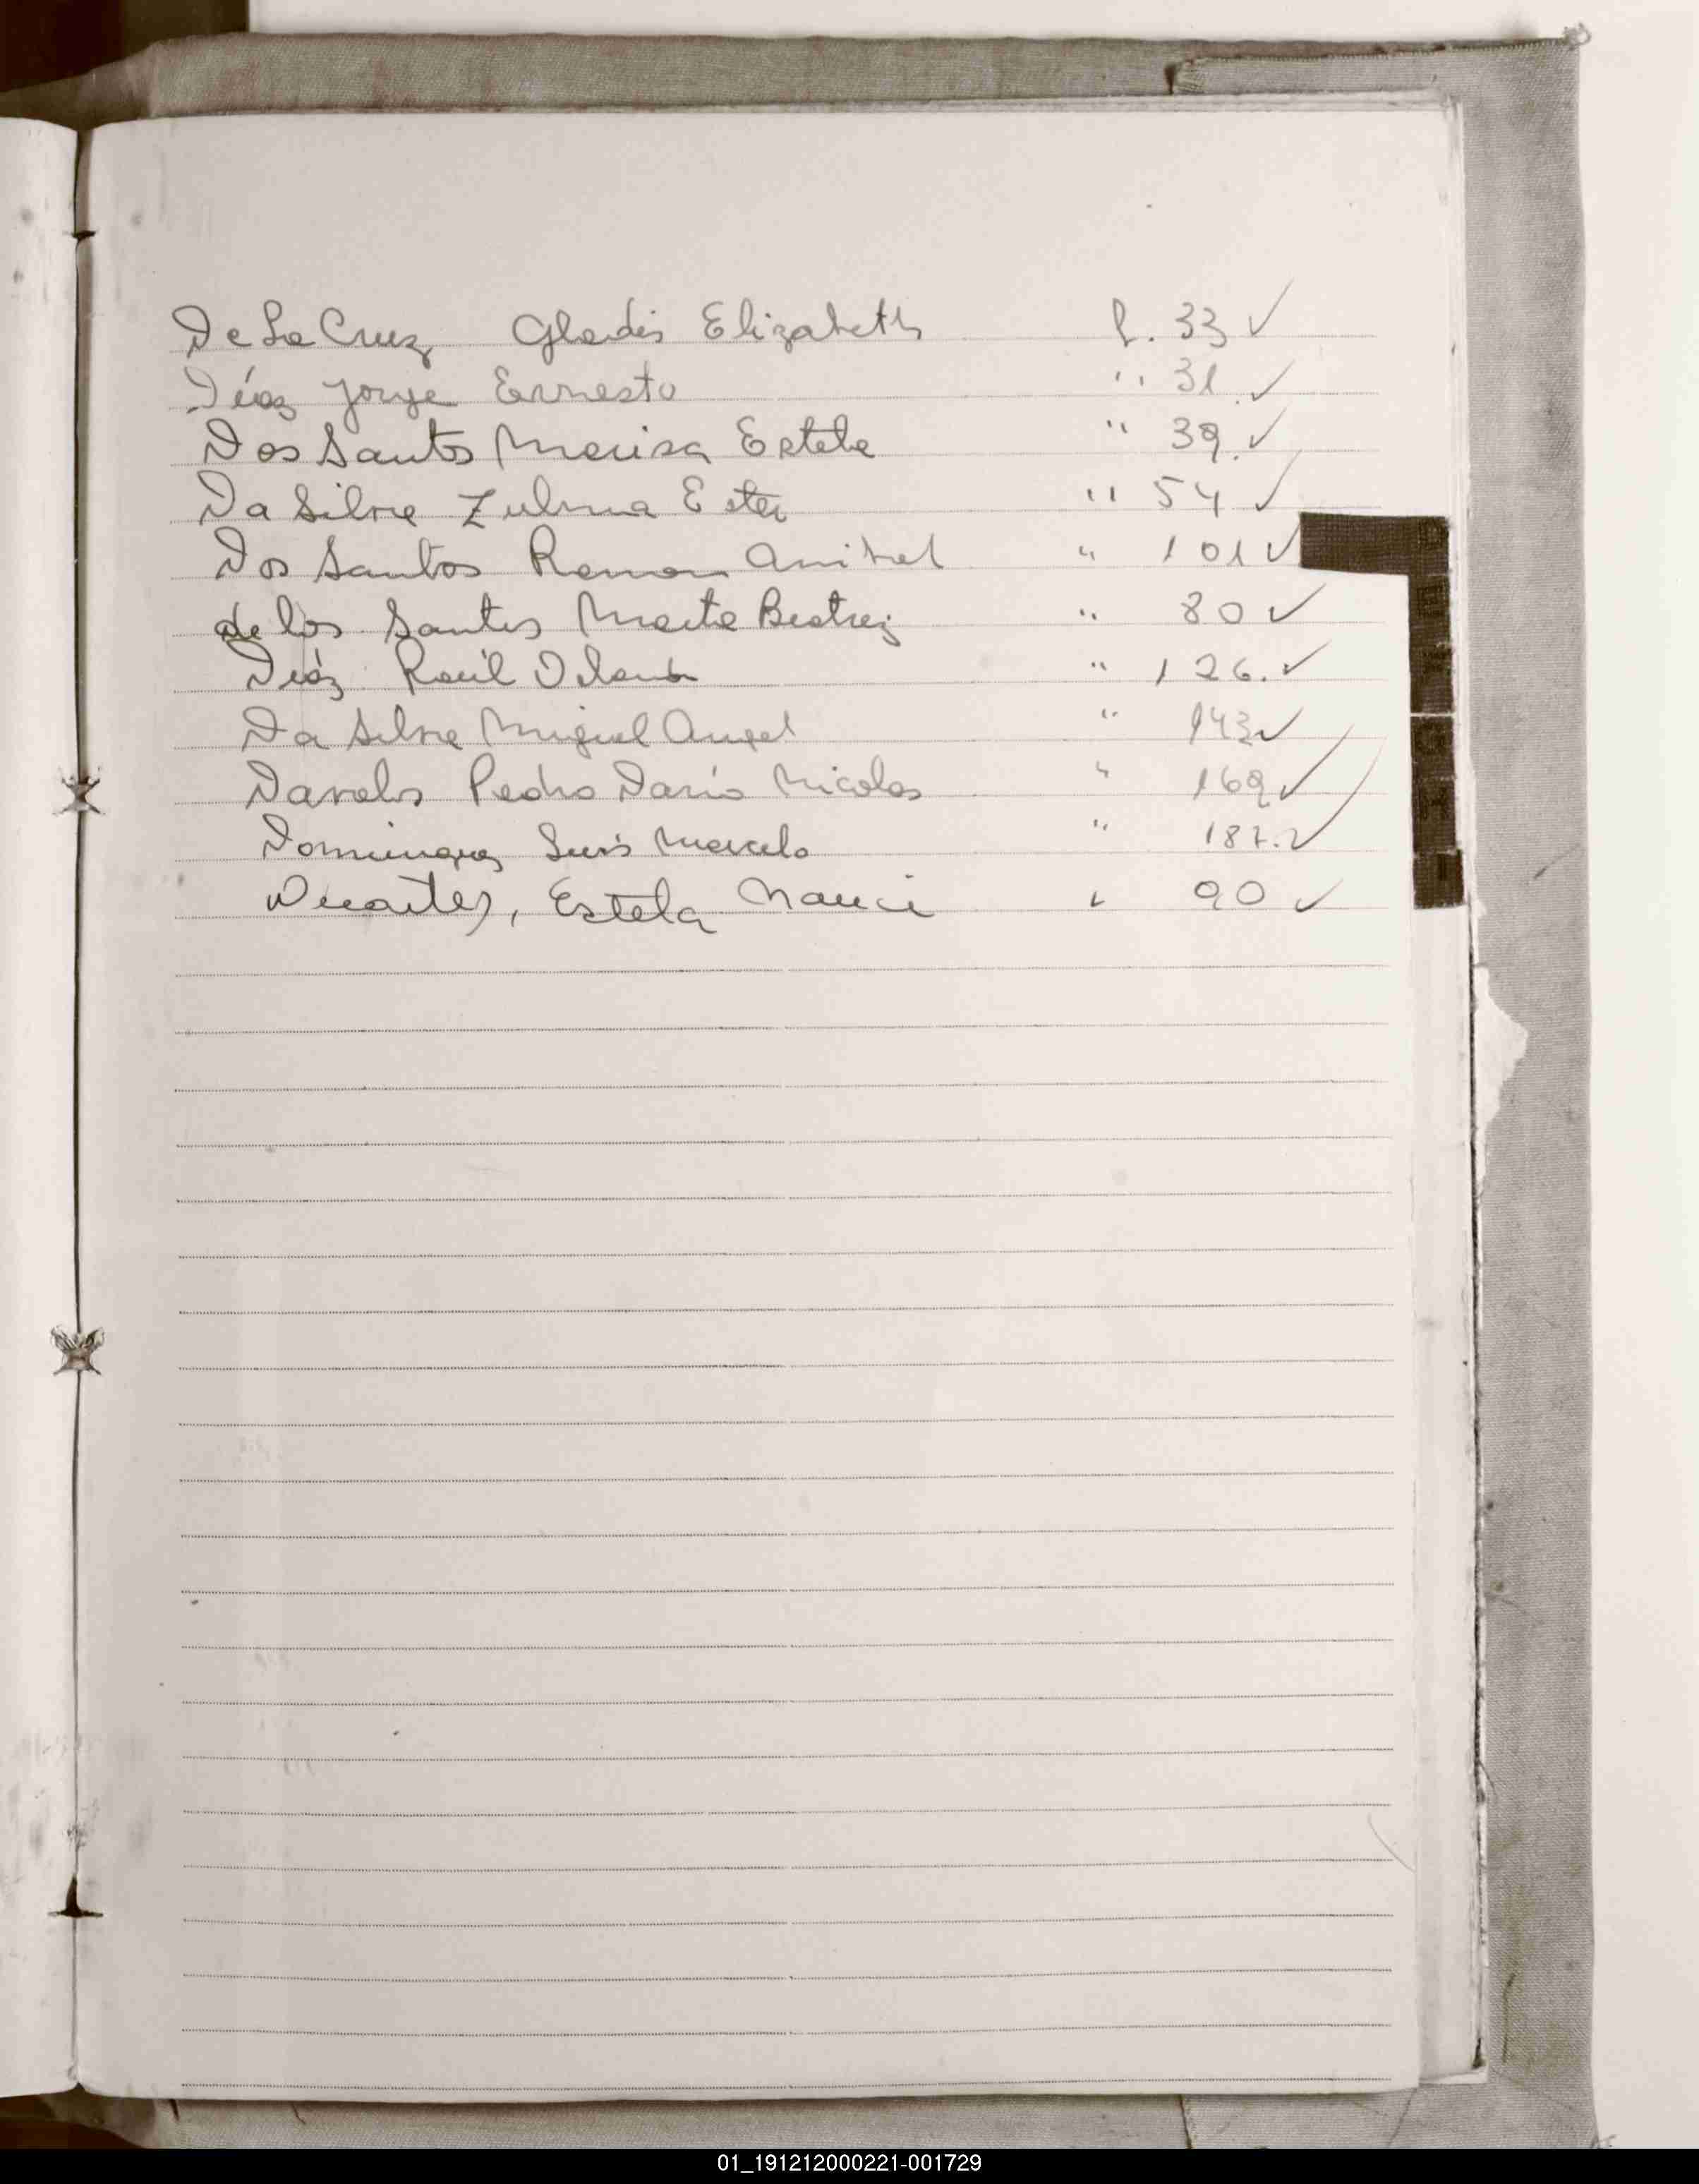 De La Cruz Gladis Elizabeth f. 33 ✓
Díaz Jorge Ernesto " 31 ✓
Dos Santos Marisa Estela " 39. ✓
Da Silva Zulma Ester " 54 ✓
Dos Santos Ramon Anibal " 101 ✓
de los Santos Marta Beatriz " 80 ✓
Diáz Raúl " 126. ✓
Da Silva Miguel Angel " 143 ✓
Davalos Pedro Darío Nicolas " 169 ✓
Dominguez Luis Marcelo " 187. ✓
Duarte, Estela Nanci " 90 ✓
01_191212000221-001729